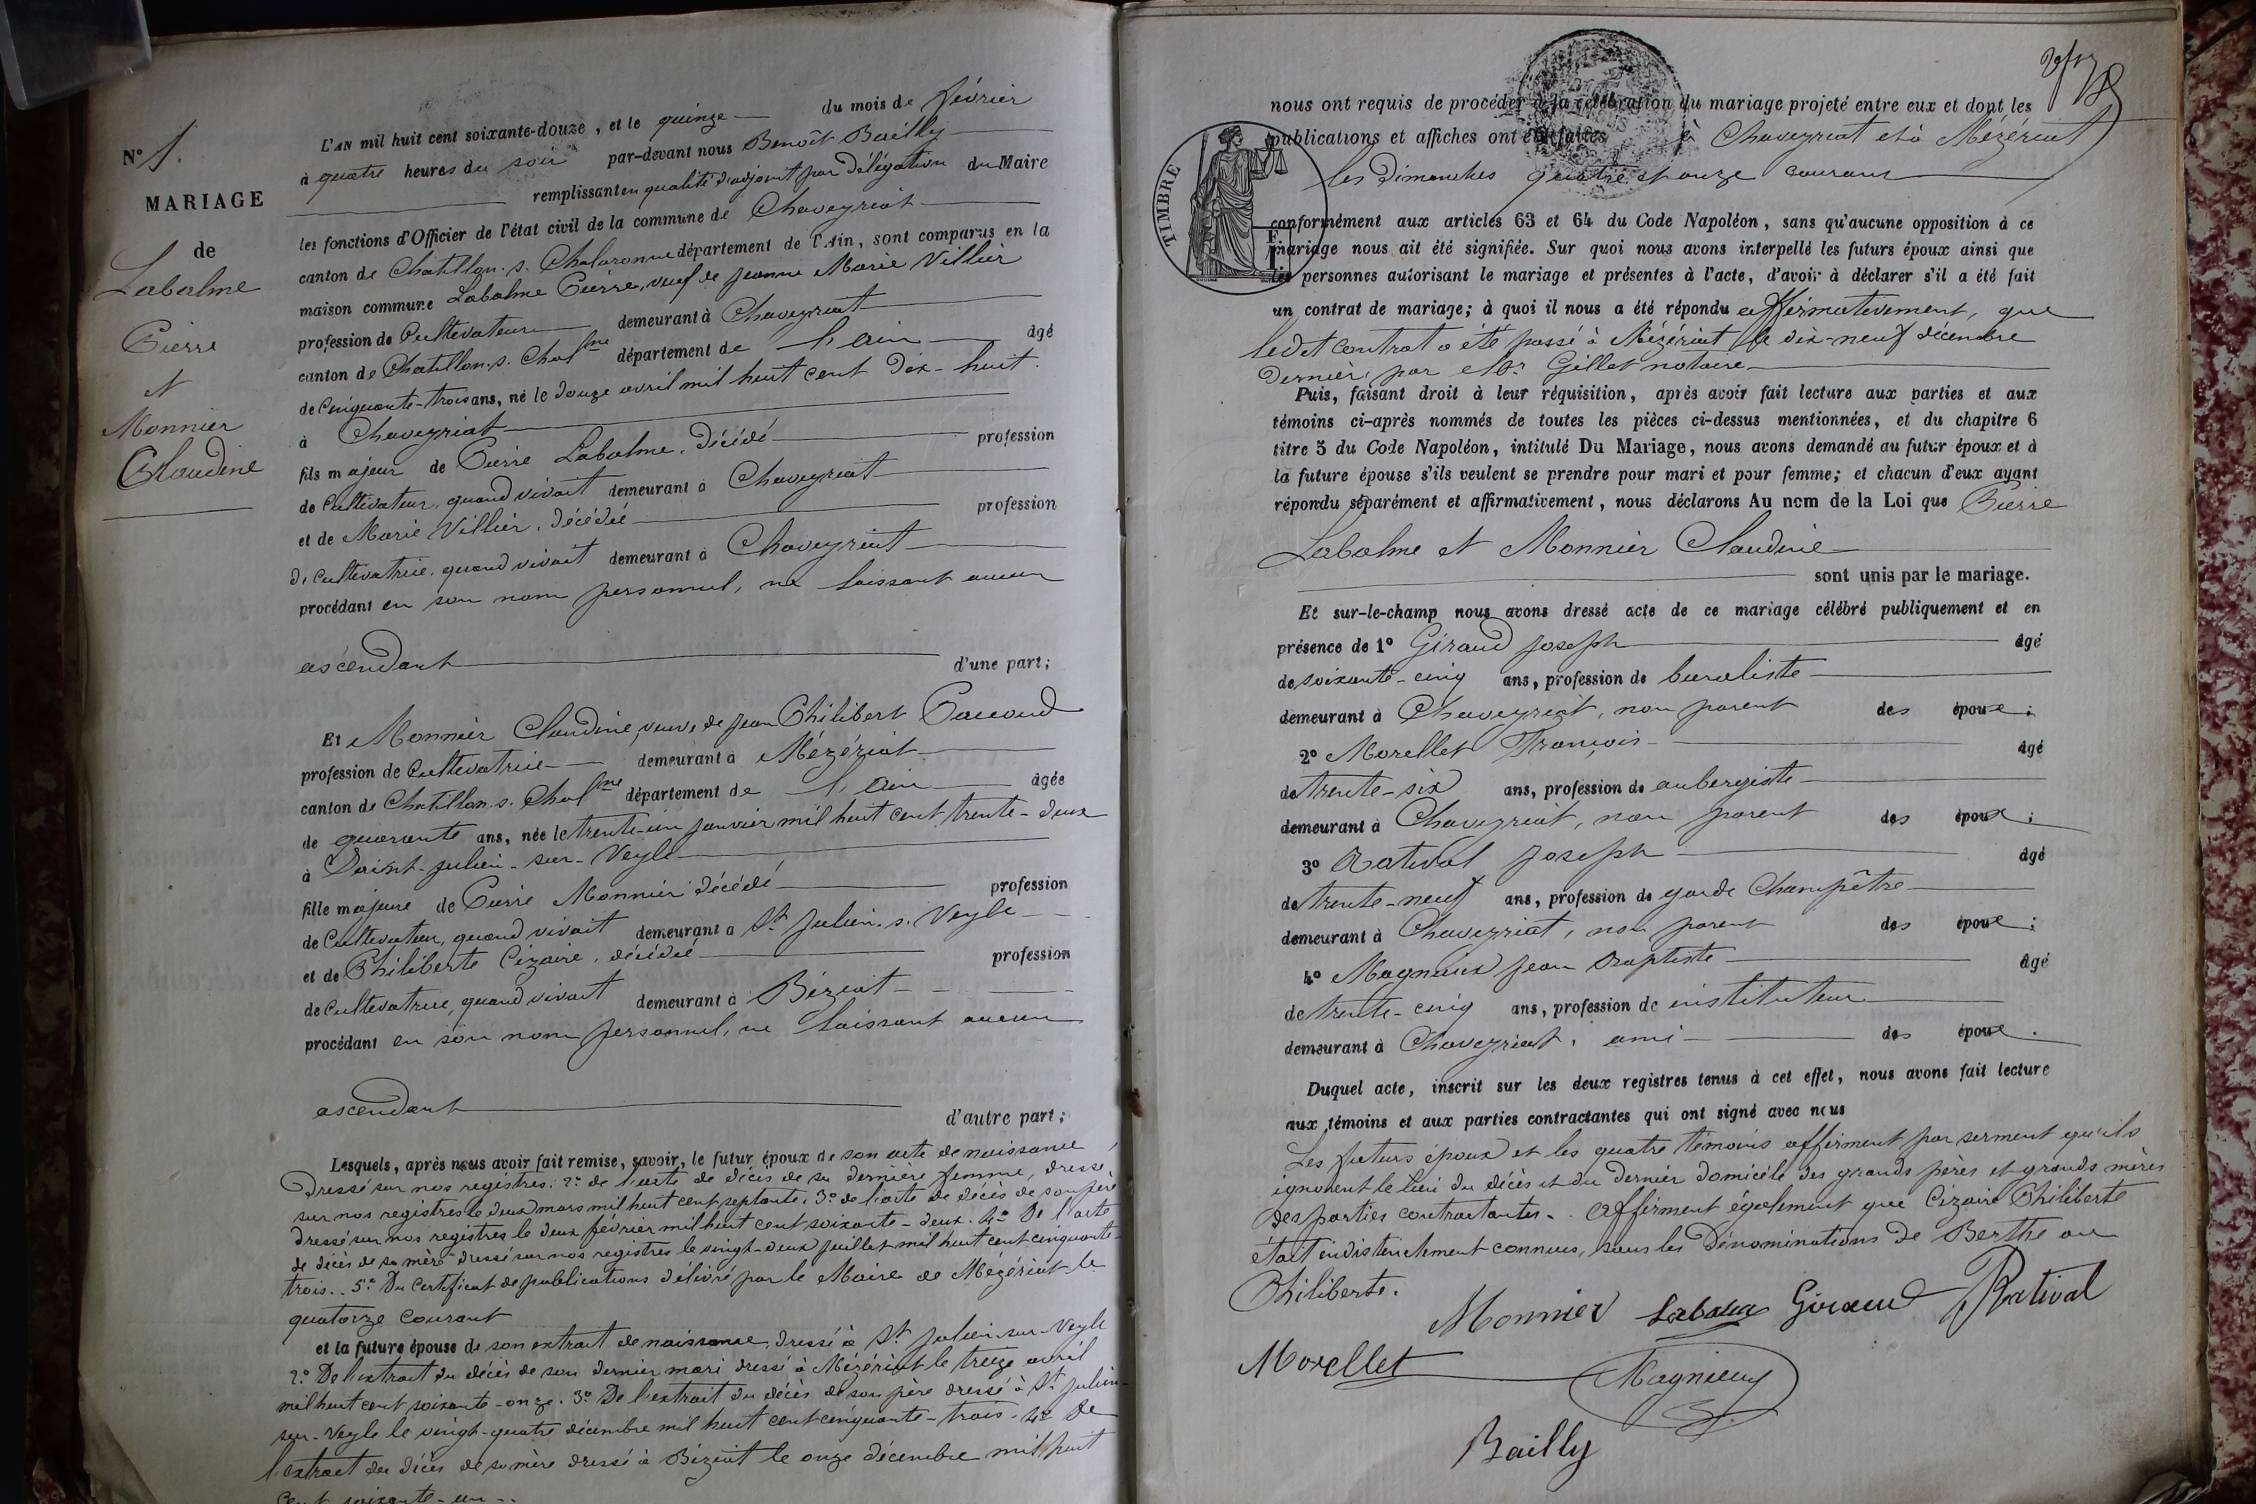 N° 1.
MARIAGE
de
Labalme
Pierre
et
Monnier
Claudine
L'AN mil huit cent soixante-douze, et le quinze du mois de février
à quatre heures du soir par-devant nous Benoît Bailly
remplissant en qualité d'adjoint par délégation du Maire
les fonctions d'Officier de l'état civil de la commune de Chaveyriat
canton de Chatillon. s. Chalaronne département de l'Ain, sont comparus en la
maison commune Labalme Pierre, veuf de Jeanne Marie Villier
profession de Cultivateur demeurant à Chaveyriat
canton de Chatillon. s. Chalne département de l'ain âgé
de Cinquante-trois ans, né le douze avril mil huit cent dix-huit.
à Chaveyriat
fils majeur de Pierre Labalme, décédé profession
de Cultivateur, quand vivait demeurant à Chaveyriat
et de Marie Villier, décédée profession
de Cultivatrice, quand vivait demeurant à Chaveyriat
procédant en son nom personnel, ne laissant aucun
ascendant d'une part;
Et Monnier Claudine, veuve de Jean Philibert Pacoud
profession de Cultivatrice demeurant à Mézériat
canton de Chatillon. s. Chalne département de l'ain âgée
de quarante ans, née le trente-un janvier mil huit cent trente-deux
à Saint-Julien-sur-Veyle
fille majeure de Pierre Monnier décédé profession
de Cultivateur, quand vivait demeurant à St Julien. s. Veyle
et de Philiberte Cizaire, décédée profession
de Cultivatrice, quand vivait demeurant à Béziat
procédant en son nom personnel, ne laissant aucun
ascendant d'autre part;
Lesquels, après nous avoir fait remise, savoir, le futur époux de son acte de naissance
dressé sur nos registres. 2° de l'acte de décès de sa dernière femme, dressé
sur nos registres le deux mars mil huit cent septante. 3° de l'acte de décès de son père
dressé sur nos registres le deux février mil huit cent soixante-deux. 4° De l'acte
de décès de sa mère dressé sur nos registres le vingt-deux juillet mil huit cent cinquante-
trois.. 5° Du Certificat de publications délivré par le Maire de Mézériat le
quatorze courant
et la future épouse de son extrait de naissance, dressé à St Julien-sur-Veyle
2° De l'extrait du décès de son dernier mari dressé à Mézériat le treize avril
mil huit cent soixante-onze. 3° De l'extrait du décès de son père dressé à St Julien-
sur-Veyle le vingt-quatre décembre mil huit cent cinquante-trois. 4° De
l'extrait du décès de sa mère dressé à Béziat le onze décembre mil huit
cent soixante-un..
nous ont requis de procéder à la célébration du mariage projeté entre eux et dont les
publications et affiches ont été faites à Chaveyriat et à Mézériat
les dimanches quatre et onze courant
TIMBRE
conformément aux articles 63 et 64 du Code Napoléon, sans qu'aucune opposition à ce
mariage nous ait été signifiée. Sur quoi nous avons interpellé les futurs époux ainsi que
les personnes autorisant le mariage et présentes à l'acte, d'avoir à déclarer s'il a été fait
un contrat de mariage; à quoi il nous a été répondu affirmativement, que
ledit contrat a été passé à Mézériat le dix-neuf décembre
dernier, par Mr Gillet notaire
Puis, faisant droit à leur réquisition, après avoir fait lecture aux parties et aux
témoins ci-après nommés de toutes les pièces ci-dessus mentionnées, et du chapitre 6
titre 5 du Code Napoléon, intitulé Du Mariage, nous avons demandé au futur époux et à
la future épouse s'ils veulent se prendre pour mari et pour femme; et chacun d'eux ayant
répondu séparément et affirmativement, nous déclarons Au nom de la Loi que Pierre
Labalme et Monnier Claudine
sont unis par le mariage.
Et sur-le-champ nous avons dressé acte de ce mariage célébré publiquement et en
présence de 1° Giraud Joseph âgé
de soixante-cinq ans, profession de buraliste
demeurant à Chaveyriat, non parent des époux;
2° Morellet François âgé
de trente-six ans, profession de aubergiste
demeurant à Chaveyriat, non parent des époux;
3° Ratival Joseph âgé
de trente-neuf ans, profession de garde Champêtre
demeurant à Chaveyriat, non parent des époux;
4° Magnieux Jean Baptiste âgé
de trente-cinq ans, profession de instituteur
demeurant à Chaveyriat, ami des époux.
Duquel acte, inscrit sur les deux registres tenus à cet effet, nous avons fait lecture
aux témoins et aux parties contractantes qui ont signé avec nous
Les futurs époux et les quatre témoins affirment par serment qu'ils
ignorent le lieu du décès et du dernier domicile des grands pères et grands mères
des parties contractantes. Affirment également que Cizaire Philiberte
était indistinctement connue, sous les dénominations de Berthe ou
Philiberte.
Monnier Labalme Giraud Ratival
Morellet Magnieux
Bailly